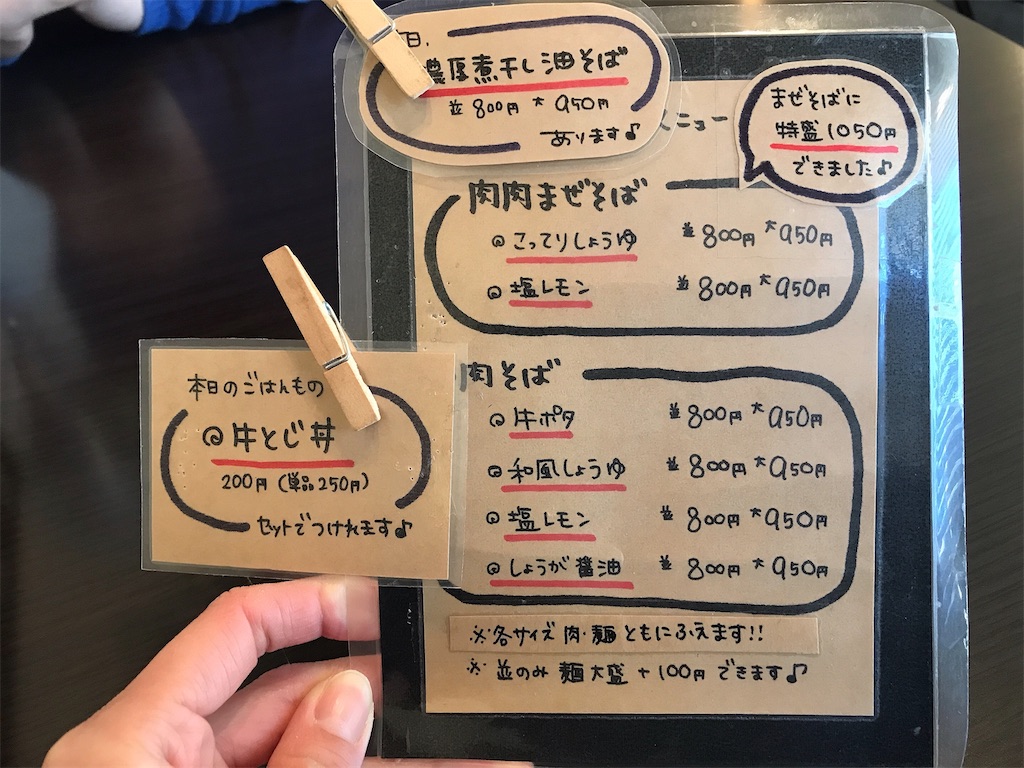 日、
濃厚煮干し油そば
並 800円 大 950円
あります♪
メニュー
まぜそばに
特盛1050円
できました♪
肉肉まぜそば
◎こってりしょうゆ 並800円 大950円
◎塩レモン 並800円 大950円
肉そば
◎牛ポタ 並800円 大950円
◎和風しょうゆ 並800円 大950円
◎塩レモン 並800円 大950円
◎しょうが醤油 並800円 大950円
※各サイズ 肉・麺 ともにふえます!!
※並のみ 麺大盛+100円 できます♪
本日のごはんもの
◎牛とじ丼
200円(単品250円)
セットでつけれます♪